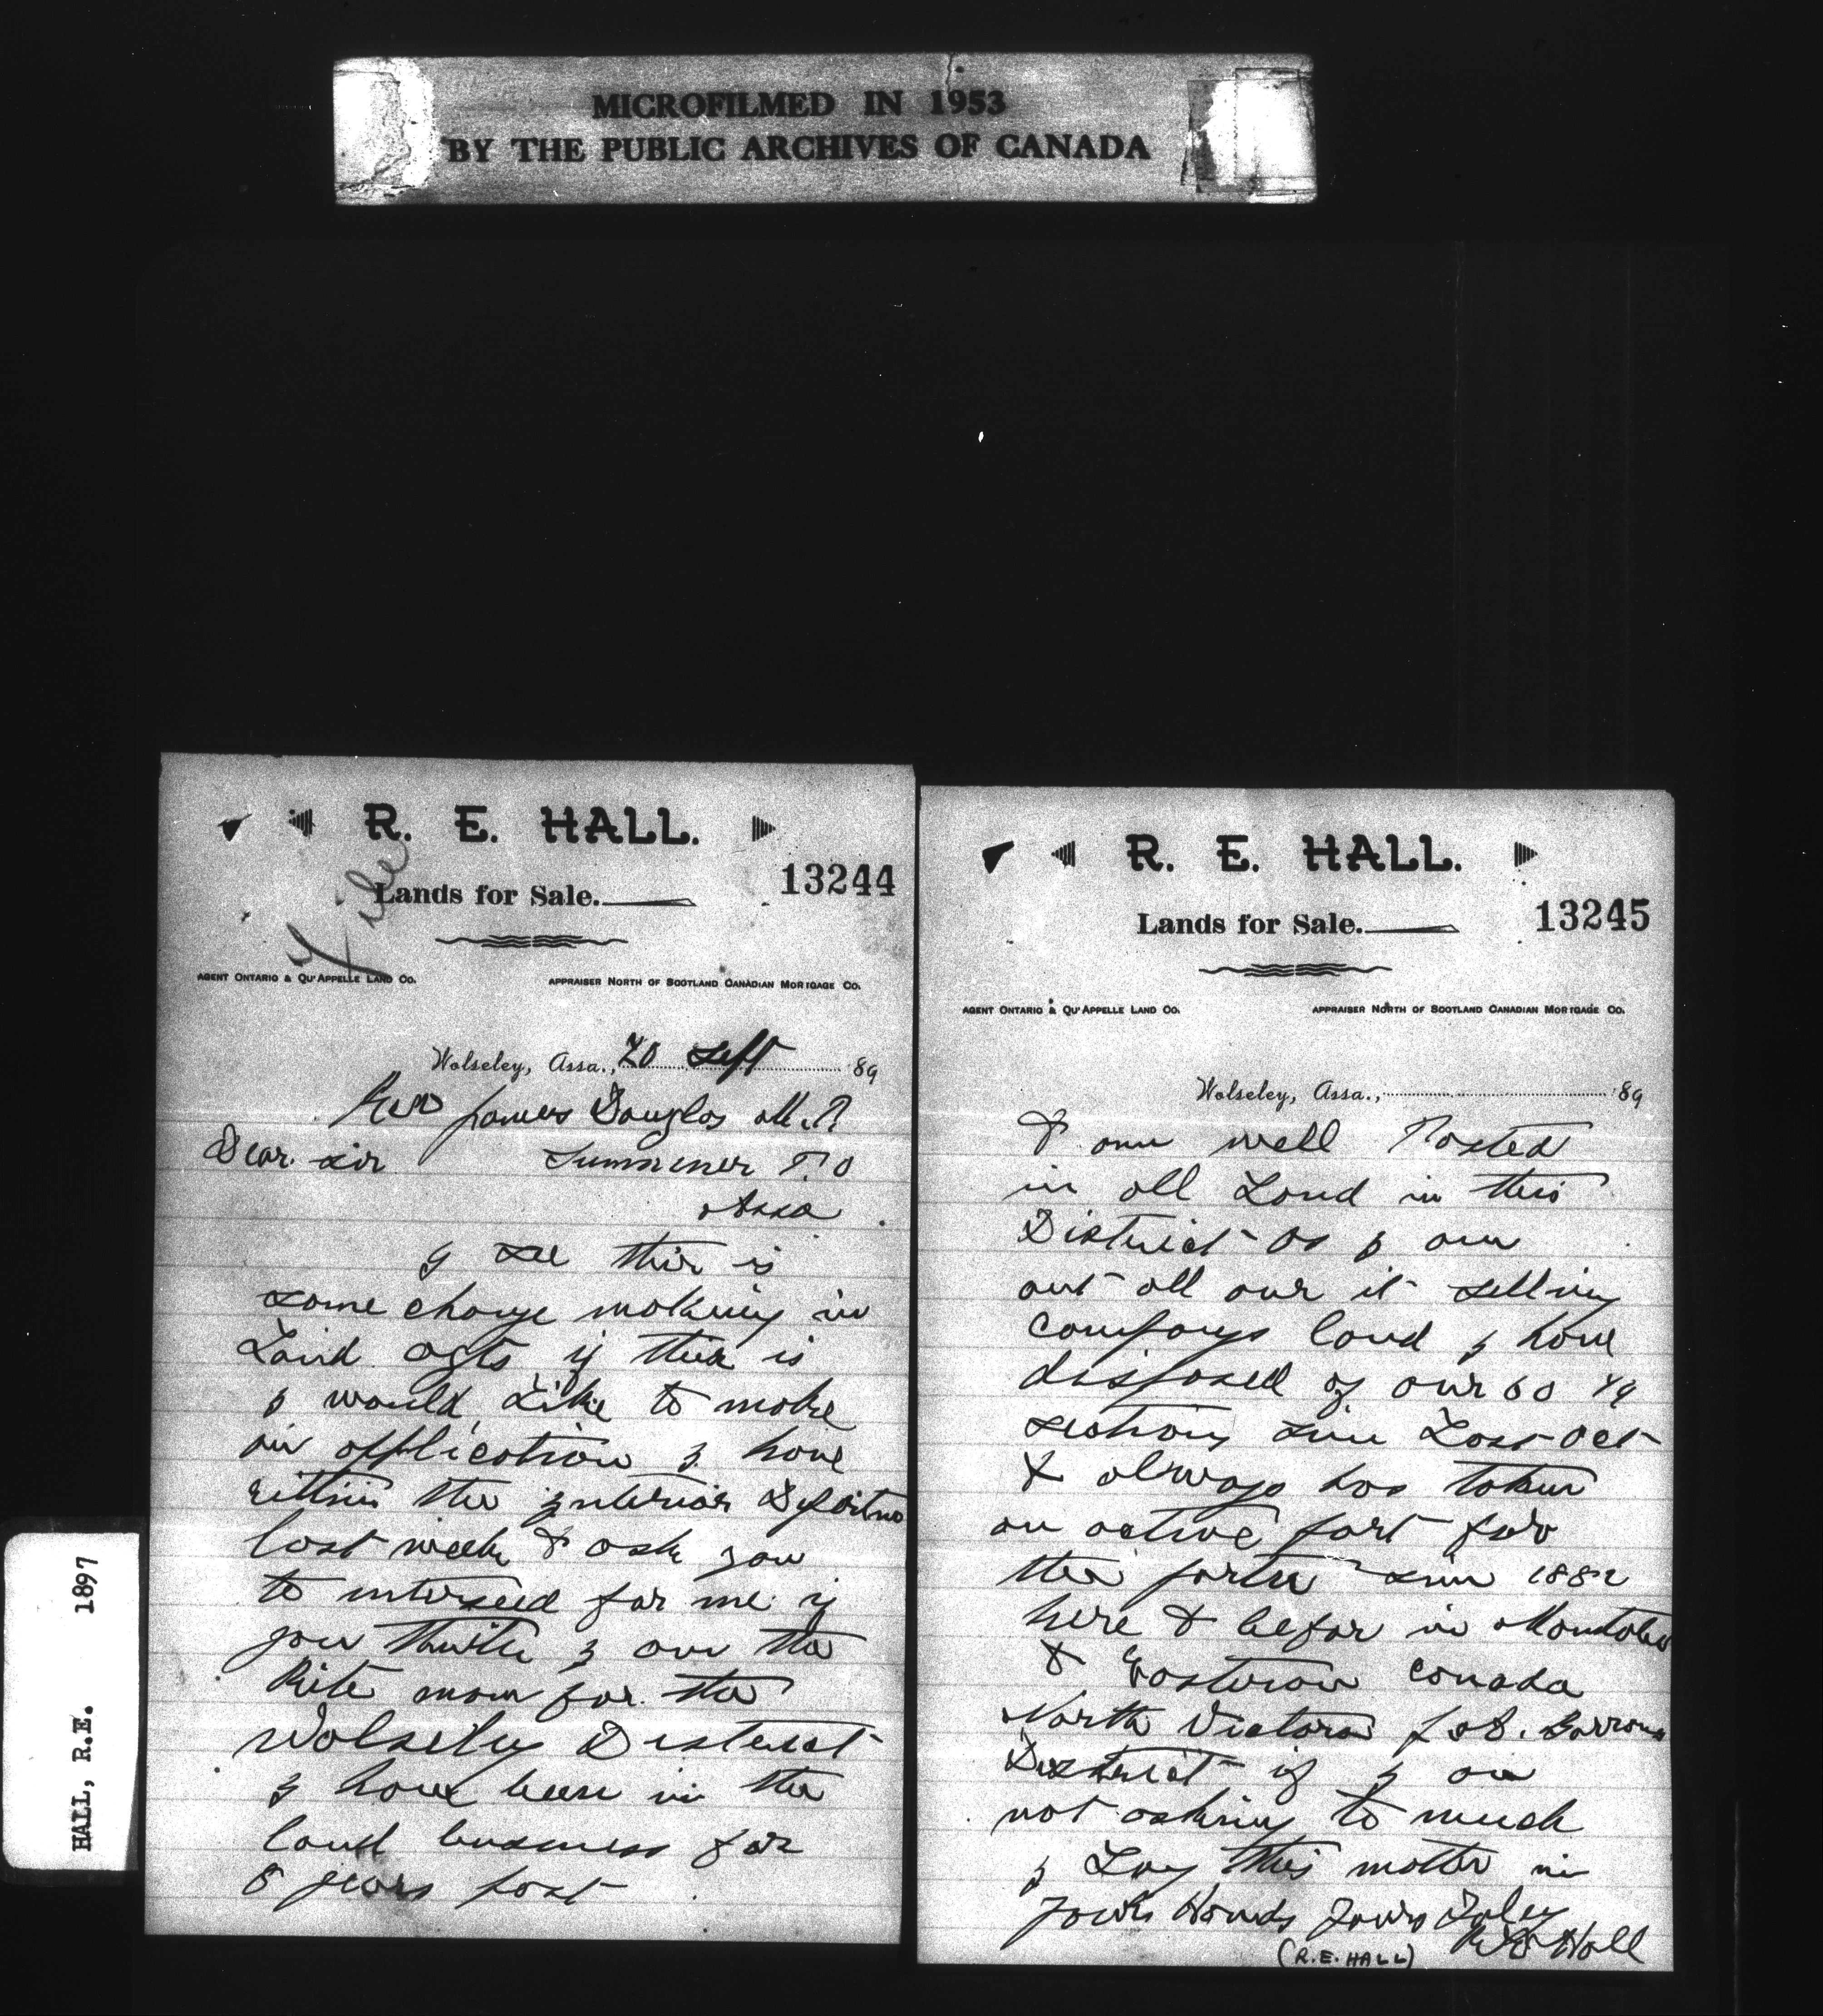 MICROFILMED IN 1953
BY THE PUBLIC ARCHIVES OF CANADA
HALL, R.E. 1897
R. E. HALL.
13244
Lands for Sale.
File
AGENT ONTARIO & QU'APPELLE LAND CO. APPRAISER NORTH OF SCOTLAND CANADIAN MORTGAGE CO.
Wolseley, Assa., 20 Sept 189
Rev James Douglas M.P.
Dear Sir Summener P.O
Assa
I see thir is
some change making in
Land agts if thear is
I would Like to make
an application I have
rittin the Interior Departme
last week & ask you
to interseed for me if
you think I am the
Rite man for the
Wolseley District
I have been in the
land buisness for
8 years past
R. E. HALL.
13245
Lands for Sale.
AGENT ONTARIO & QU'APPELLE LAND CO. APPRAISER NORTH OF SCOTLAND CANADIAN MORTGAGE CO.
Wolseley, Assa., 189
& am well Posted
in all Land in this
District as I am
out all over it selling
Companys land I have
disposed of over 60 1/4
sections sinc Last Oct
& always has taken
an active part for
the partee sinc 1882
here & befor in Manitoba
& Eastern Canada
North Victora Barrons
District if I am
not asking to much
I Lay this matter in
your Hands yours Truley
R E Hall
(R.E. HALL)